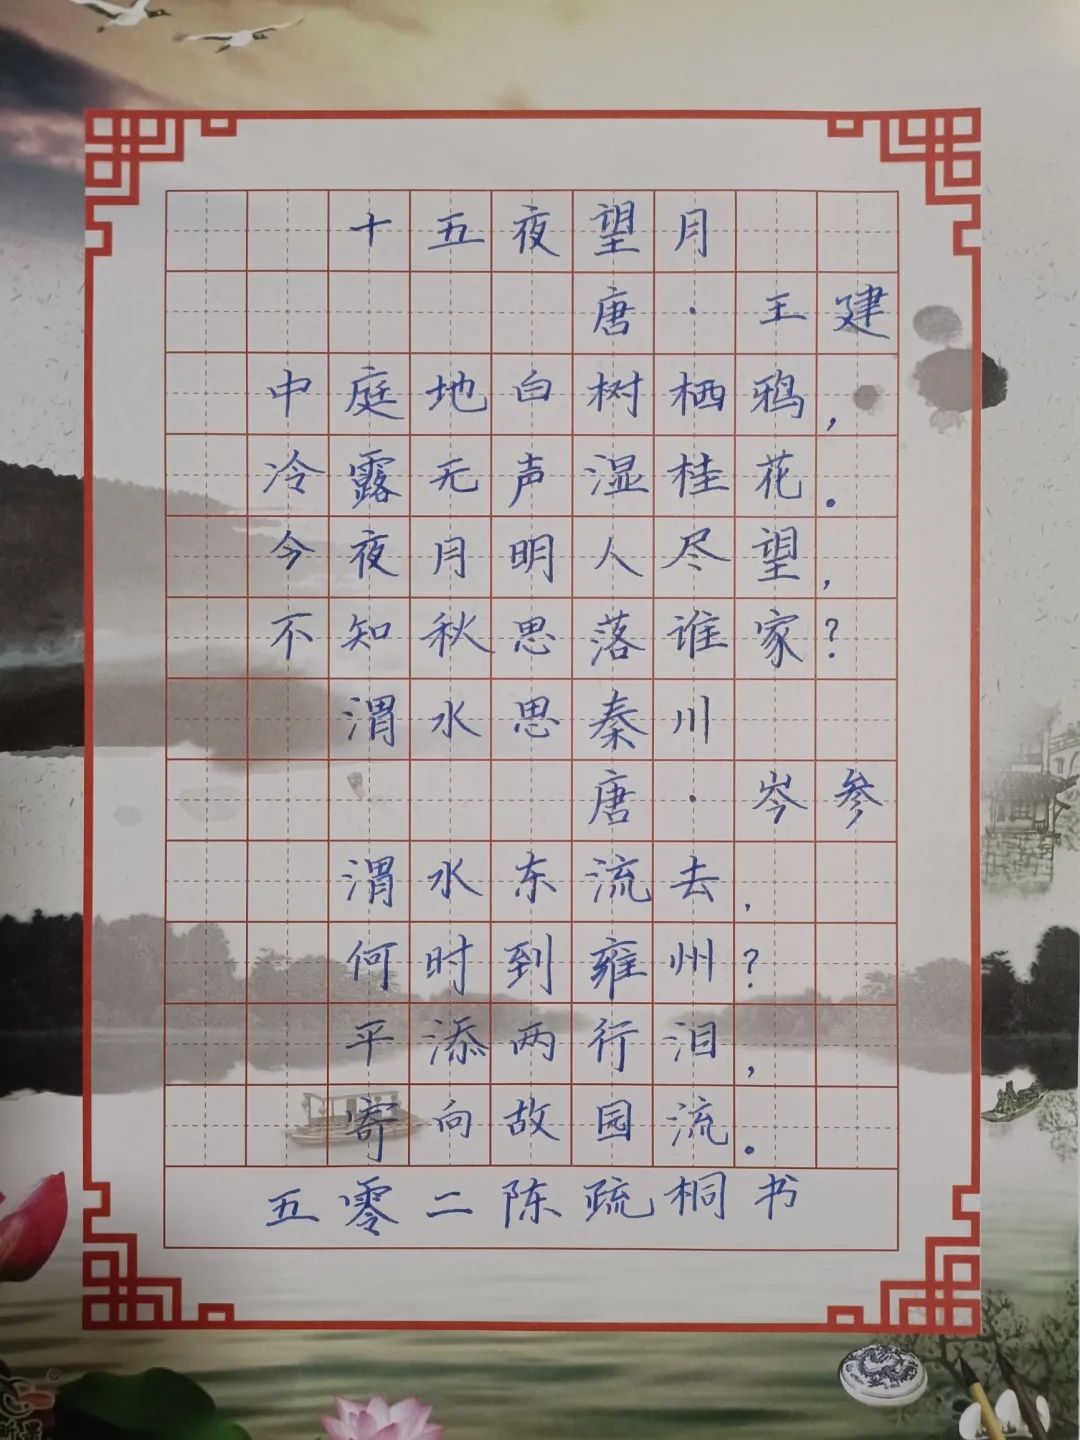 十五夜望月
唐·王建
中庭地白树栖鸦，
冷露无声湿桂花。
今夜月明人尽望，
不知秋思落谁家？
渭水思秦川
唐·岑参
渭水东流去，
何时到雍州？
平添两行泪，
寄向故园流。
五零二陈疏桐书